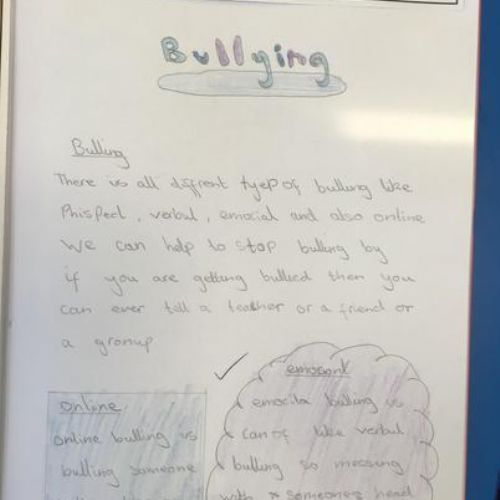 Bullying
Bulling
There is all diffrent tyep of bullung like
Phispeel, verbul, emocial and also online
we can help to stop bulling by
if you are getting bullied then you
can ever tell a teather or a friend or
a gronup
online
online bulling is
bulling someone
emosonl
emocila bulling is
can of like verbul
bulling so messing
with someones head